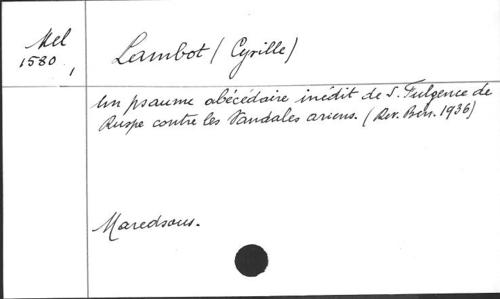 Mel
1580
1
Lambot (Cyrille)
Un psaume abécédaire inédit de S. Fulgence de
Ruspe contre les Vandales ariens. (Rev. Bén. 1936)
Maredsous.